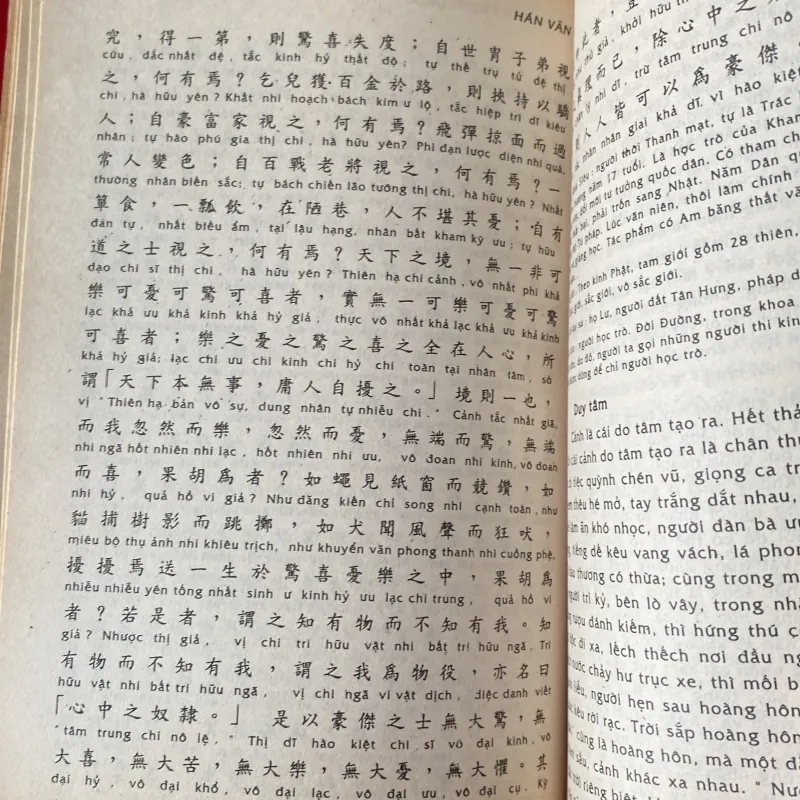 HÁN VĂN
究，得一第，則驚喜失度；自世胄子弟視
cứu, đắc nhất đệ, tắc kinh hỷ thất độ; tự thế trụ tử đệ thị
之，何有焉？乞兒獲百金於路，則挾持以驕
chi, hà hữu yên? Khất nhi hoạch bách kim ư lộ, tắc hiệp trì dĩ kiêu
人；自豪富家視之，何有焉？飛彈掠面而過
nhân; tự hào phú gia thị chi, hà hữu yên? Phi đạn lược diện nhi quá,
常人變色；自百戰老將視之，何有焉？一
thường nhân biến sắc; tự bách chiến lão tướng thị chi, hà hữu yên? Nhất
簞食，一瓢飲，在陋巷，人不堪其憂；自有
đan tự, nhất biều ẩm, tại lậu hạng, nhân bất kham kỳ ưu; tự hữu
道之士視之，何有焉？天下之境，無一非可
đạo chi sĩ thị chi, hà hữu yên? Thiên hạ chi cảnh, vô nhất phi khả
樂可憂可驚可喜者，實無一可樂可憂可驚
lạc khả ưu khả kinh khả hỷ giả, thực vô nhất khả lạc khả ưu khả kinh
可喜者；樂之憂之驚之喜之全在人心，所
khả hỷ giả; lạc chi ưu chi kinh chi hỷ chi toàn tại nhân tâm, sở
謂「天下本無事，庸人自擾之。」境則一也，
vị "Thiên hạ bản vô sự, dung nhân tự nhiễu chi." Cảnh tắc nhất giã,
而我忽然而樂，忽然而憂，無端而驚，無端
nhi ngã hốt nhiên nhi lạc, hốt nhiên nhi ưu, vô đoan nhi kinh, vô đoan
而喜，果胡為者？如蠅見紙窗而競鑽，如
nhi hỷ, quả hồ vi giả? Như đăng kiến chỉ song nhi cạnh toàn, như
貓捕樹影而跳擲，如犬聞風聲而狂吠，
miêu bộ thụ ảnh nhi khiêu trịch, như khuyển văn phong thanh nhi cuồng phệ,
擾擾焉送一生於驚喜憂樂之中，果胡為
nhiễu nhiễu yên tống nhất sinh ư kinh hỷ ưu lạc chi trung, quả hồ vi
者？若是者，謂之知有物而不知有我。知
giả? Nhược thị giả, vị chi tri hữu vật nhi bất tri hữu ngã. Tri
有物而不知有我，謂之我為物役，亦名曰
hữu vật nhi bất tri hữu ngã, vị chi ngã vi vật dịch, diệc danh viết
「心中之奴隸。」是以豪傑之士無大驚，無
"tâm trung chi nô lệ." Thị dĩ hào kiệt chi sĩ vô đại kinh, vô
大喜，無大苦，無大樂，無大憂，無大懼。其
đại hỷ, vô đại khổ, vô đại lạc, vô đại ưu, vô đại cụ. Kỳ
此者，
giả, khởi hữu
而已，除心中之
nhi dĩ, trừ tâm trung chi nô
人人皆可以為豪傑。
nhân nhân giai khả dĩ vi hào kiệt
người thời Thanh mạt, tự là Trác
năm 17 tuổi. Là học trò của Khan
đổi mới tư tưởng quốc dân. Có tham ch
bại, phải trốn sang Nhật. Năm Dân q
Tư Pháp. Lúc vãn niên, thôi làm chính
giảng học. Tác phẩm có Am băng thất v
Theo kinh Phật, tam giới gồm 28 thiên,
giới, sắc giới, vô sắc giới.
họ Lư, người đất Tân Hưng, pháp d
người học trò. Đời Đường, trong khoa
do đó, người ta gọi những người thi kin
dùng để chỉ người học trò.
Duy tâm
Cảnh là cái do tâm tạo ra. Hết thả
cái cảnh do tâm tạo ra là chân thụ
tiệc quỳnh chén vũ, giọng ca tr
thêu hé mở, tay trắng dắt nhau,
làm ăn khó nhọc, người đàn bà ư
riêng dế kêu vang vách, lá phon
thương có thừa; cùng trong m
tri kỷ, bên lò vây, trong nhà
rượu đánh kiếm, thì hứng thú c
đi xa, lếch thếch nơi đầu ng
nước chảy hư trục xe, thì mối b
liễu, người hẹn sau hoàng hôn
kêu rời rạc. Trời sắp hoàng hôn
cùng là hoàng hôn, mà một đằ
sầu, cảnh khác xa nhau." Nư